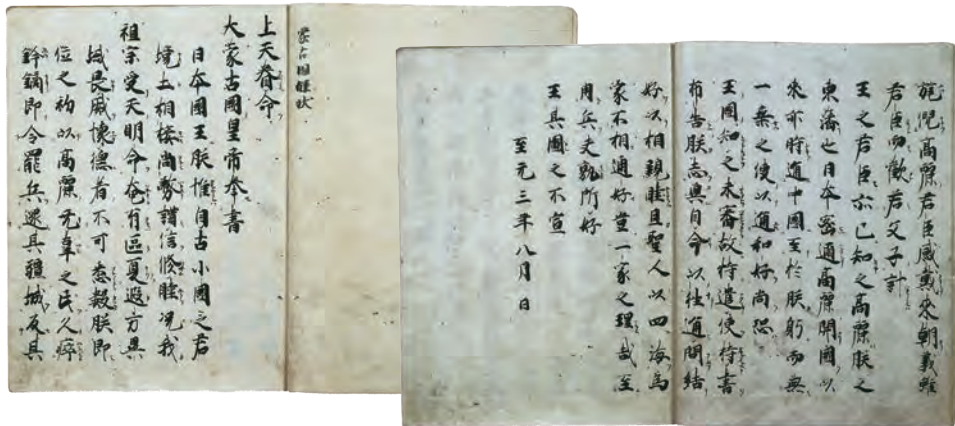 蒙古國牒状
上天眷命
大蒙古國皇帝奉書
日本國王朕惟自古小國之君
境土相接尚務講信修睦况我
祖宗受天明命奄有區夏遐方異
域畏威懐德者不可悉數朕即
位之初以高麗无辜之民久瘁
鋒鏑即令罷兵還其疆域反其
旄倪高麗君臣感戴來朝義雖
君臣而歡若父子計
王之君臣亦已知之高麗朕之
東藩也日本密迩高麗開國以
來亦時通中國至於朕躬而無
一乗之使以通和好尚恐
王國知之未審故特遣使持書
布告朕志冀自今以往通問結
好以相親睦且聖人以四海為
家不相通好豈一家之理哉至
用兵夫孰所好
王其圖之不宣
至元三年八月 日